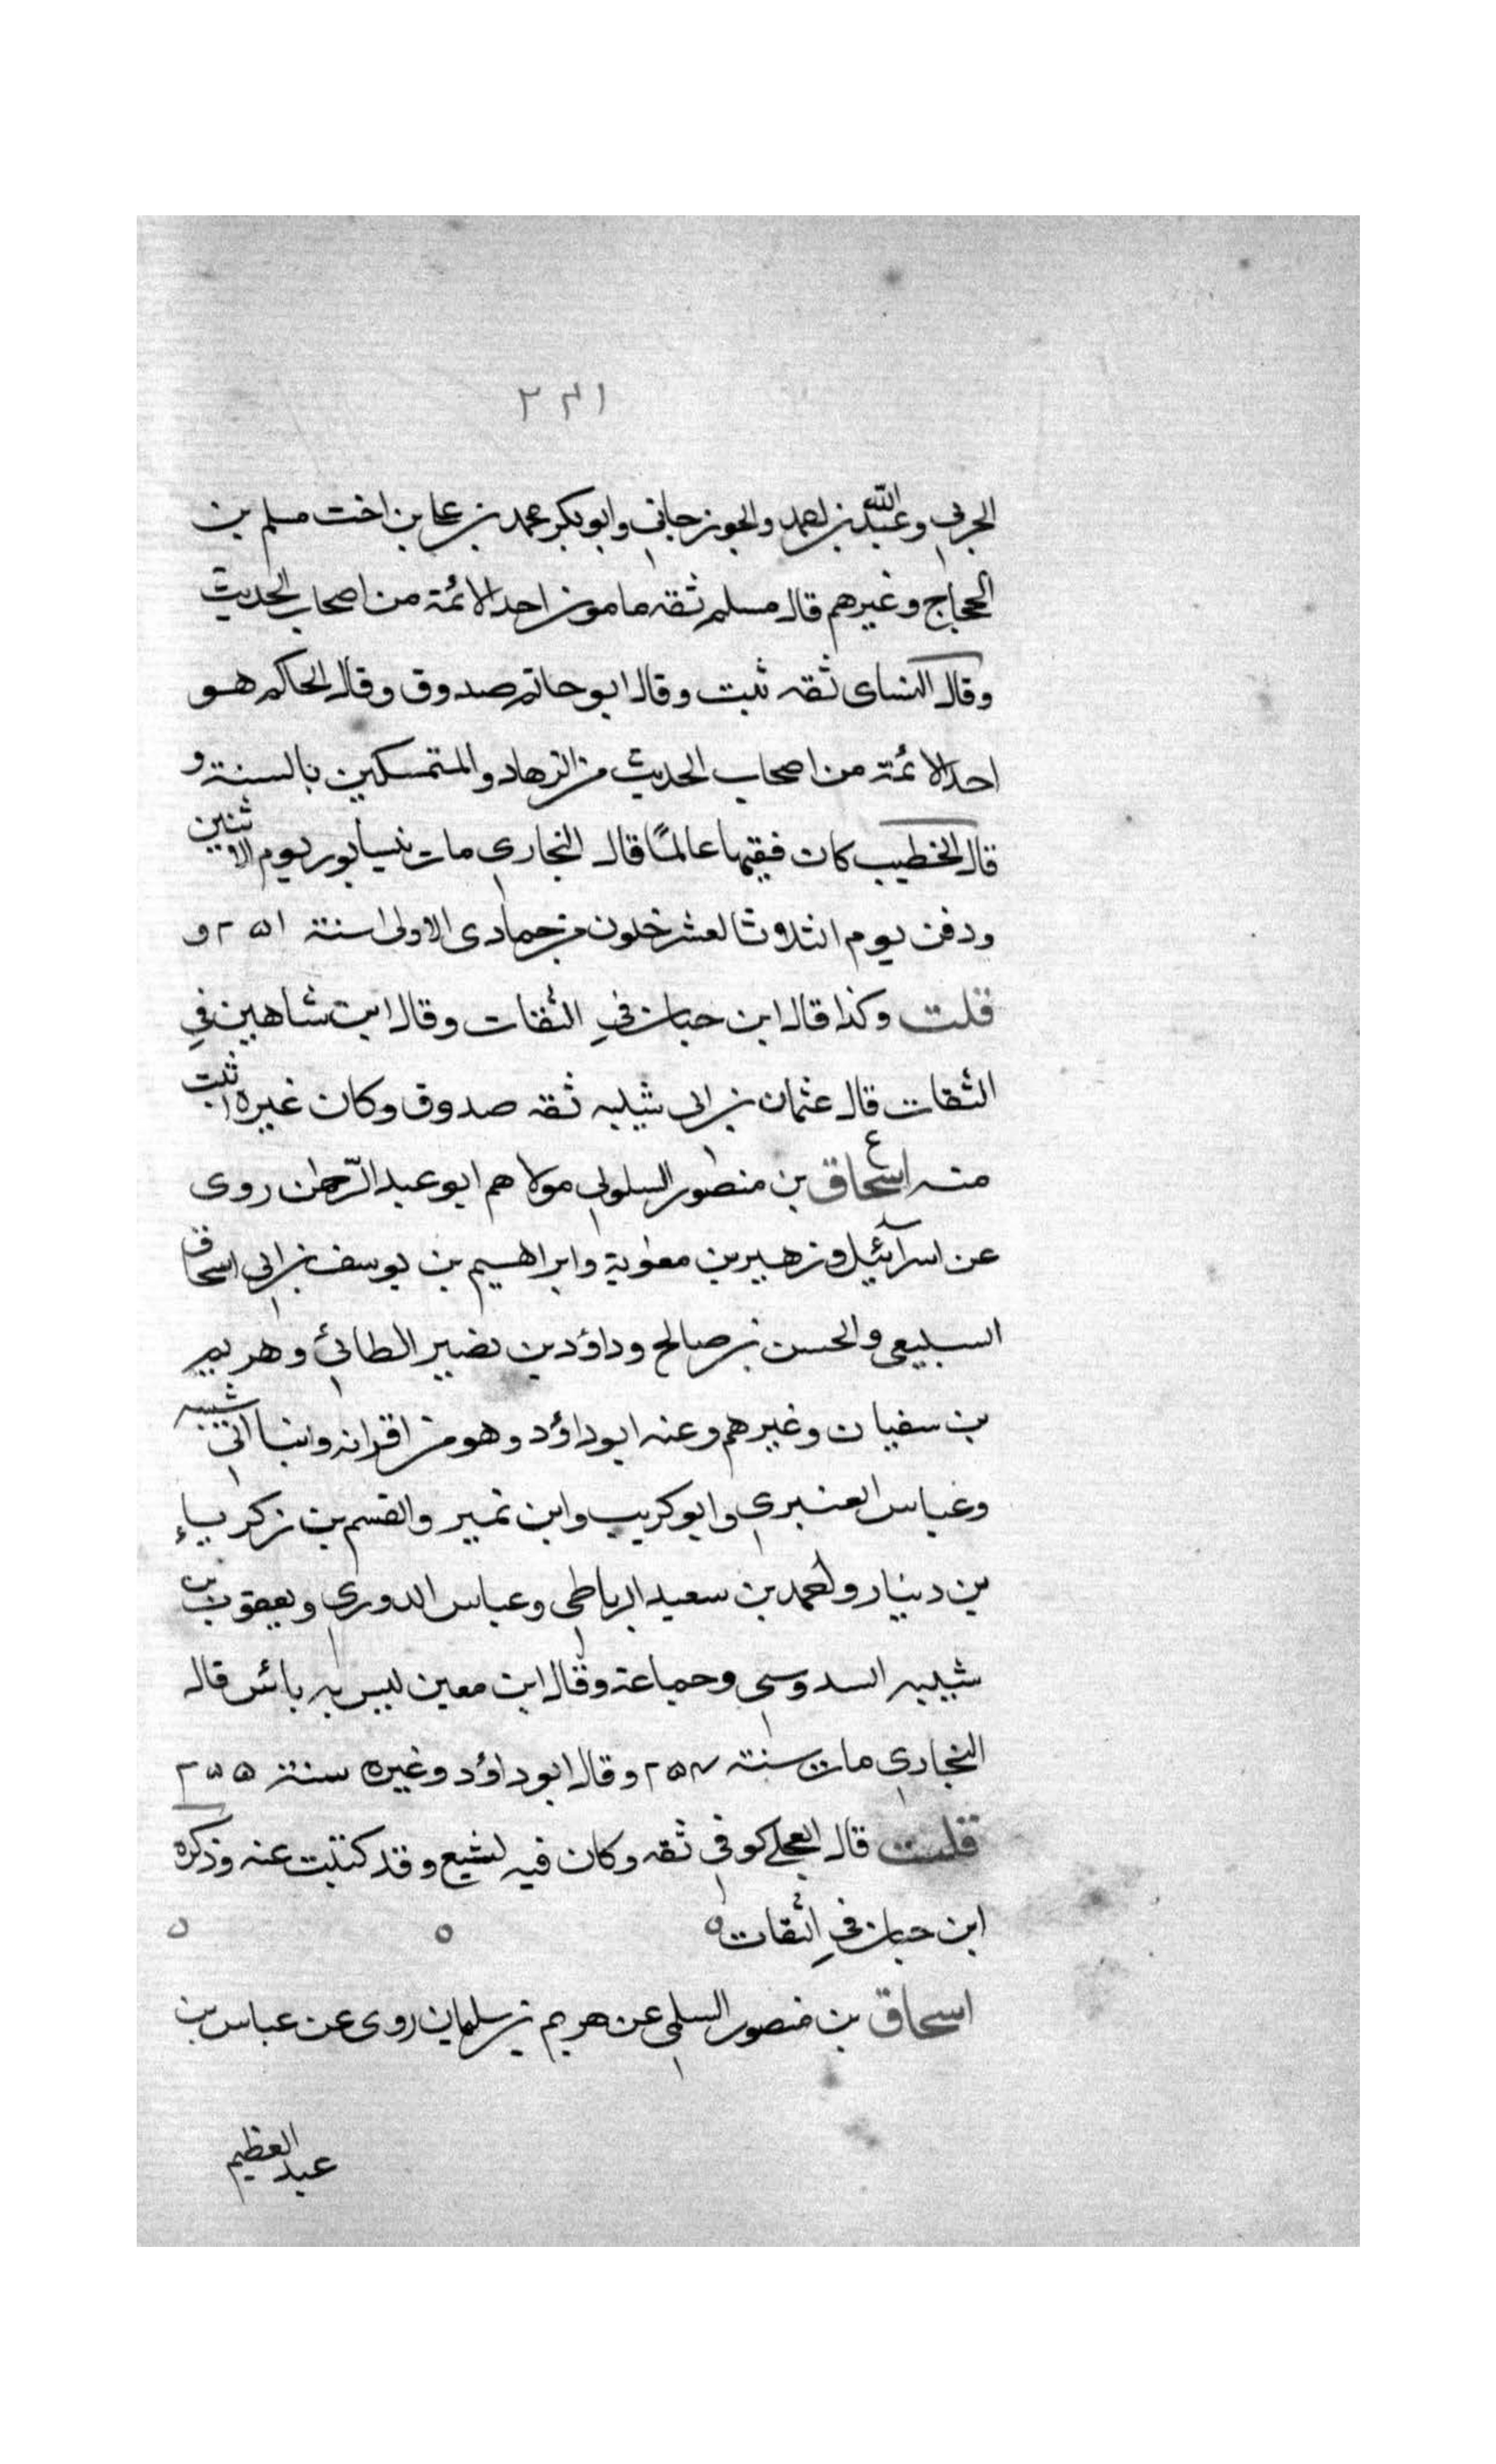 ٢٣١
الحربي وعبدالله بن احمد والجوزجاني وابوبكر محمد بن علي ابن اخت مسلم بن
الحجاج وغيرهم قال مسلم ثقه مامون احد الائمة من اصحاب الحديث
وقال النساى ثقه ثبت وقال ابو حاتم صدوق وقال الحاكم هو
احد الائمة من اصحاب الحديث من الزهاد والمتمسكين بالسنة و
قال الخطيب كان فقيها عالمًا قال البخاري مات بنيسابور يوم الاثنين
ودفن يوم الثلاثا لعشر خلون من جمادى الاولى سنة ٢٥١ و
قلت وكذا قال ابن حبان في الثقات وقال ابن شاهين في
الثقات قال عثمان بن ابى شيبه ثقه صدوق وكان غيره اثبت
منه اسحاق بن منصور السلولي مولاهم ابو عبد الرّحمٰن روى
عن اسرآئيل وزهير بن معٰوية وابراهيم بن يوسف بن ابي اسحاق
السبيعي والحسن بن صالح وداؤد بن نصير الطائي وهريم
بن سفيان وغيرهم وعنه ابو داؤد وهو من اقرانه وابنا ابي شيبه
وعباس العنبري وابوكريب وابن نمير والقسم بن زكرياء
بن دينار واحمد بن سعيد الرباطي وعباس الدوري ويعقوب بن
شيبه السدوسي وجماعة وقال ابن معين ليس به بائس قال
البخاري مات سنة ٢٥٤ وقال ابو داؤد وغيره سنة ٢٥٥
قلت قال العجلي كوفي ثقه وكان فيه تشيع وقد كتبت عنه وذكره
ابن حبان في الثقات
اسحاق بن منصور السلمي عن هريم بن سلمان روى عن عباس بن
عبد العظيم